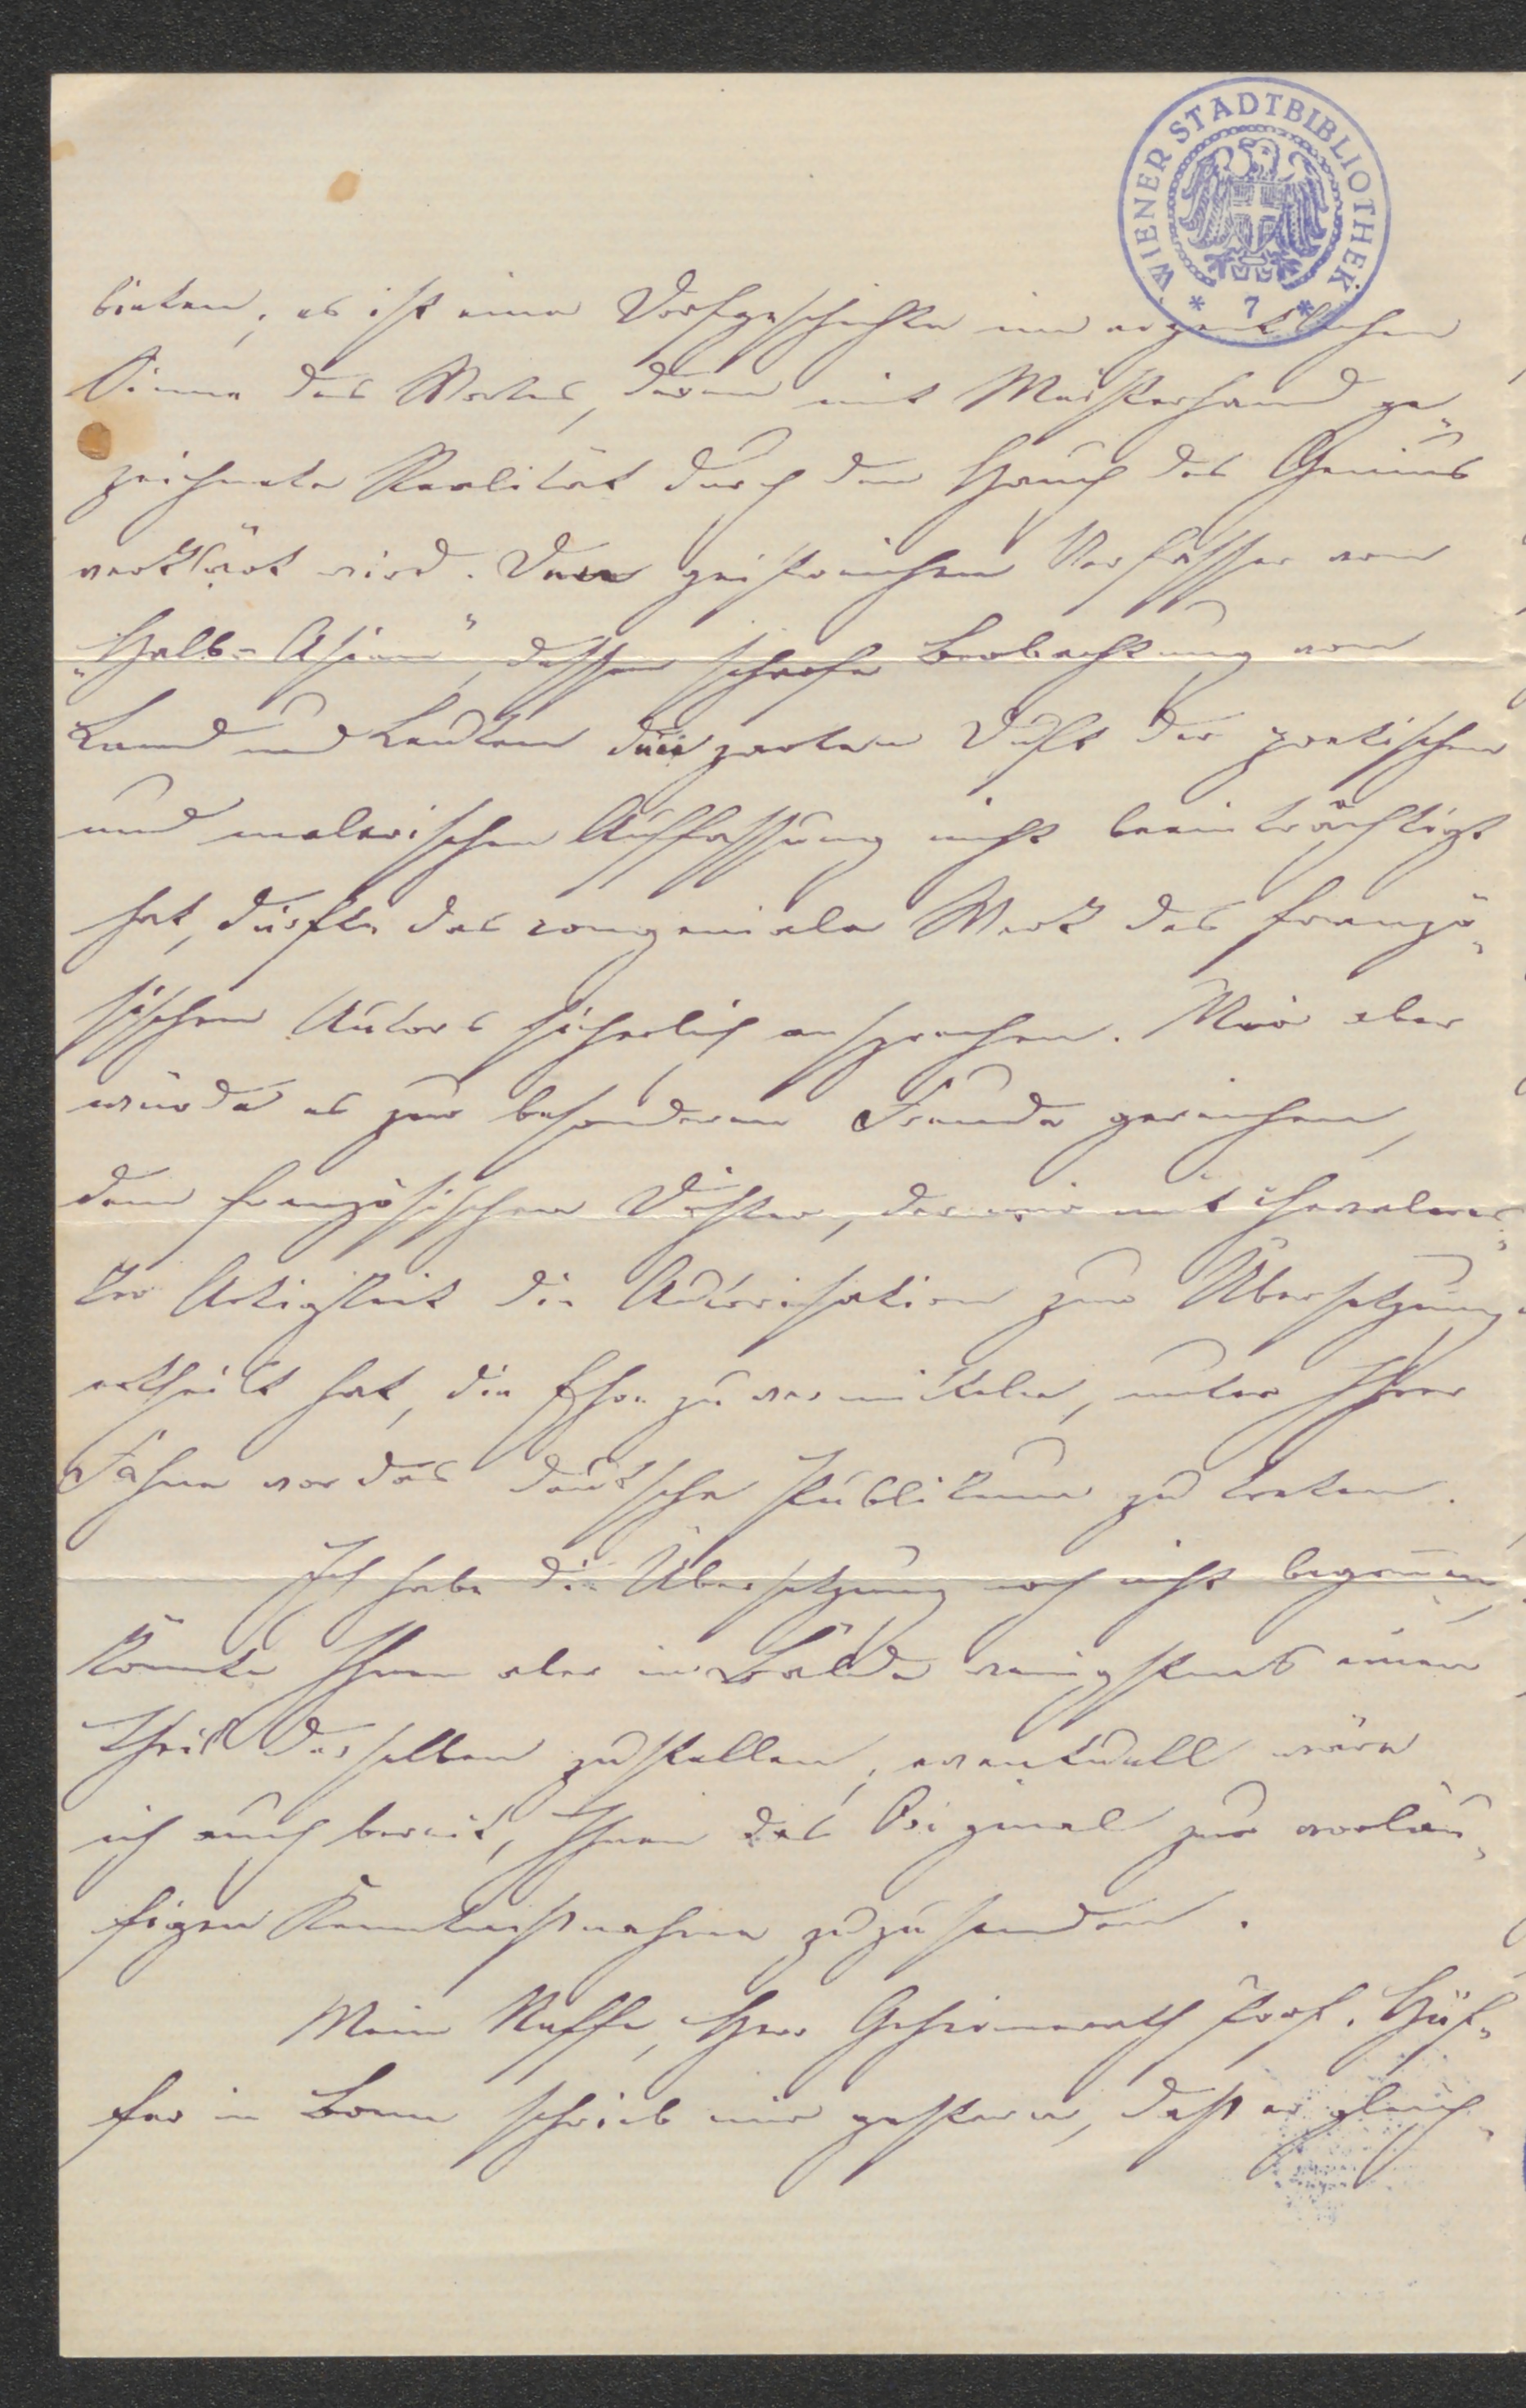 WIENER STADTBIBLIOTHEK
* 7 *
bieten, es ist eine Dorfgeschichte im eigentlichen
Sinne des Wortes, deren mit Meisterhand ge-
zeichnete Realität durch den Hauch des Genius
verklärt wird. Dem geistreichen Verfasser von
„Halb-Asien", dessen scharfe Beobachtung von
Land und Leuten den zarten Duft der poetischen
und malerischen Auffassung nicht beeinträchtigt
hat, dürfte das congeniale Werk des franzö-
sischen Autors sicherlich ansprechen. Mir aber
würde es zur besonderen Freude gereichen,
dem französischen Dichter, der mir mit chevaleres-
ker Artigkeit die Autorisation zur Übersetzung
ertheilt hat, die Ehre zu vermitteln, unter Ihrer
Fahne vor das deutsche Publikum zu treten.
Ich habe die Übersetzung noch nicht begonnen,
könnte Ihnen aber in Bälde wenigstens einen
Theil derselben zustellen, eventuell wäre
ich auch bereit, Ihnen das Original zur vorläu-
figen Kenntnißnahme zuzusenden.
Mein Neffe, Herr Geheimrath Prof. Hüf-
fer in Bonn schrieb mir gestern, daß er gleich-